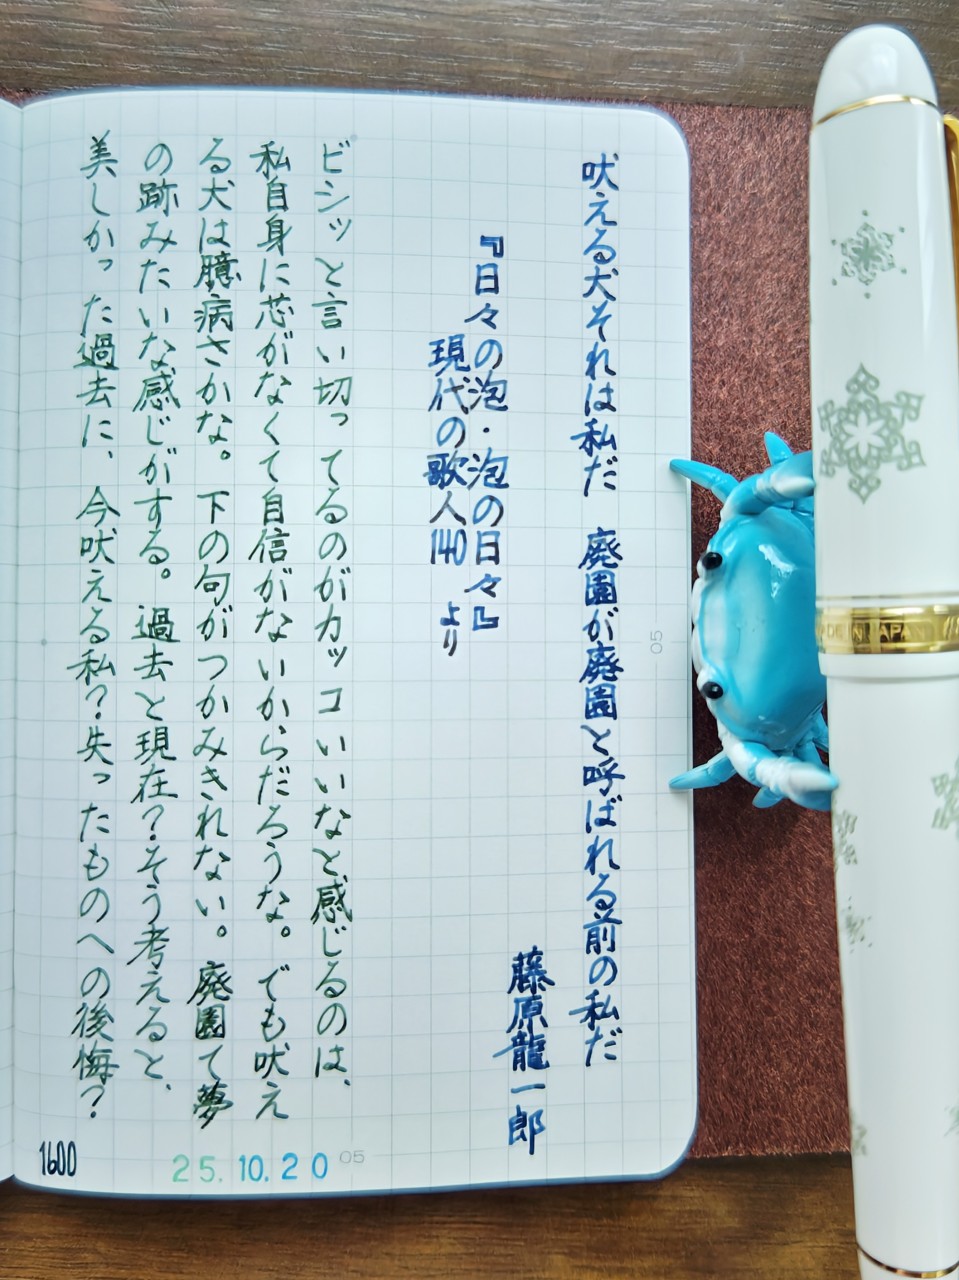 吠える犬それは私だ　廃園が廃園と呼ばれる前の私だ
藤原龍一郎
『日々の泡・泡の日々』
現代の歌人140 より
ビシッと言い切ってるのがカッコいいなと感じるのは、
私自身に芯がなくて自信がないからだろうな。でも吠え
る犬は臆病さかな。下の句がつかみきれない。廃園て夢
の跡みたいな感じがする。過去と現在？そう考えると、
美しかった過去に、今吠える私？失ったものへの後悔？
1600
25.10.20
05
05
MADE IN JAPAN